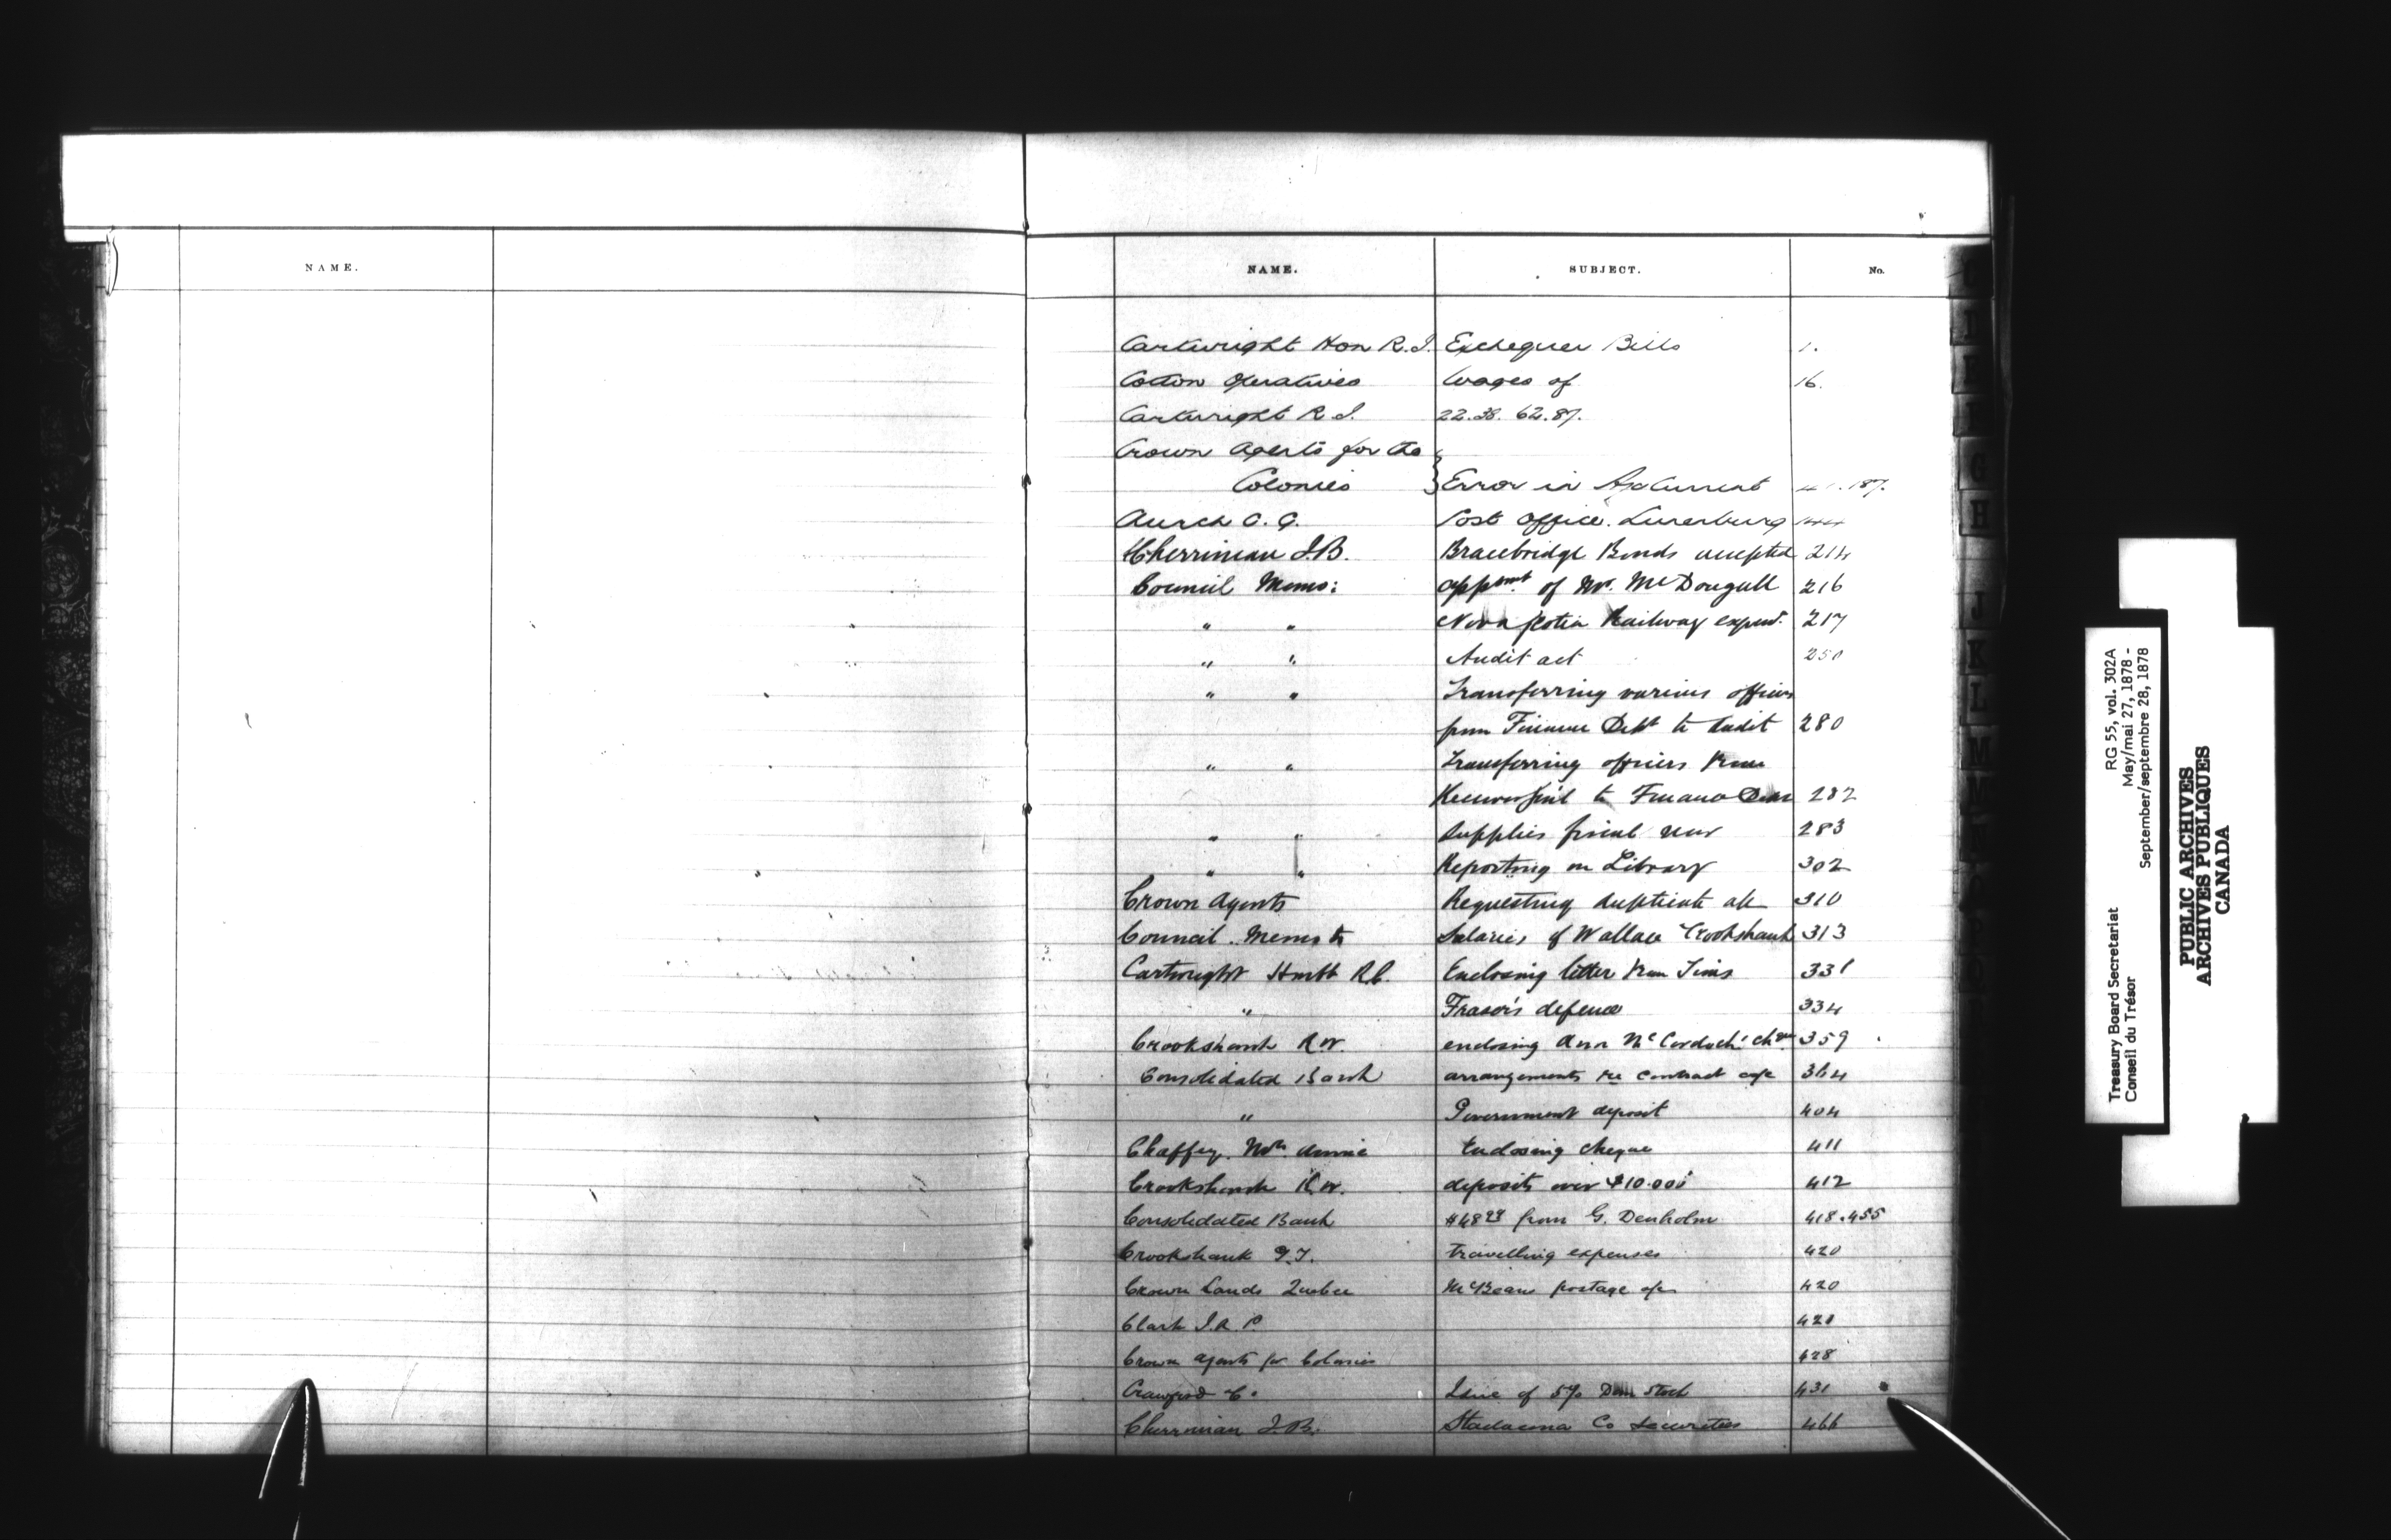 NAME.
NAME. SUBJECT. No.
Cartwright Hon R.J. Exchequer Bills 1.
Cotton Operatives Wages of 16.
Cartwright R J. 22.38. 62.87.
Crown Agents for the
Colonies } Error in A/c Current 187.
C. G. Post Office. Lunenburg 144
Cherriman J.B. Bracebridge Bonds accepted 214
Council Memo: appmt. of Mr. McDougall 216
" " Nova Scotia Railway expend. 217
" " Audit act 250
" " Transferring various officers
from Finance Dept to Audit 280
" " Transferring officers from
to Finance 282
" " Supplies fiscal year 283
" " Reporting on Library 302
Crown Agents Requesting duplicate a/c 310
Council Memo to Salaries of Wallace Crookshank 313
Cartwright R.C. Enclosing letter from Tims 331
" Frasers defence 334
Crookshank R W. enclosing Ann 359
Consolidated Bank arrangements re contract a/c 364
" Government deposit 404
Chaffey. Mrs. Annie Enclosing cheque 411
Crookshank R.W. deposits over $10.000 412
Consolidated Bank from G. Denholm 418.455
Crookshank travelling expenses 420
Crown Lands Quebec McBeans postage a/c 420
Clark J.R. P. 421
Crown agents for Colonies 428
Crawford C. Issue of 5% Dom Stock 431
Cherriman J.B. Stadacona Co Securities 466
Treasury Board Secretariat RG 55, vol. 302A
Conseil du Trésor May/mai 27, 1878 -
September/septembre 28, 1878
PUBLIC ARCHIVES
ARCHIVES PUBLIQUES
CANADA
G
H
J
K
L
M